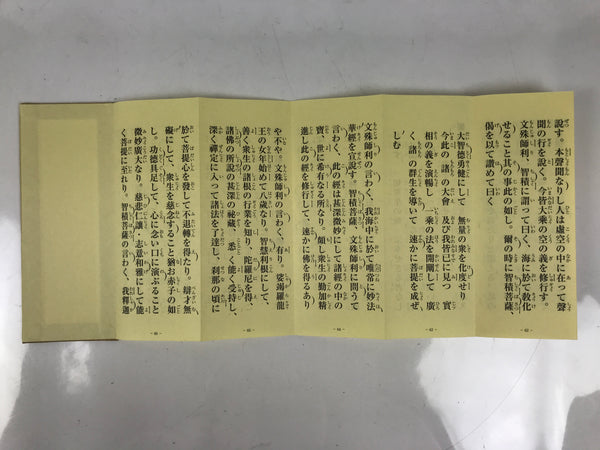 說す。本聲聞なりし人は虛空の中に在って聲
聞の行を說く。今皆大乘の空の義を修行す。
文殊師利、智積に謂って曰く、海に於て教化
せること其の事此の如し。爾の時に智積菩薩、
偈を以て讚めて曰く
大智德勇健にして　無量の衆を化度せり
今此の諸の大會　及び我皆已に見つ　實
相の義を演暢し　一乘の法を開闡して　廣
く諸の群生を導いて　速かに菩提を成ぜ
しむ
文殊師利の言わく、我海中に於て唯常に妙法
華經を宣說す。智積菩薩、文殊師利に問うて
言わく、此の經は甚深微妙にして諸經の中の
寶、世に希有なる所なり。頗し衆生の勤加精
進し此の經を修行して、速かに佛を得るあり
や不や。文殊師利の言わく、有り。娑竭羅龍
王の女年始めて八歲なり。智慧利根にして、
善く衆生の諸根の行業を知り、陀羅尼を得、
諸佛の所說の甚深の祕藏、悉く能く受持し、
深く禪定に入って諸法を了達し、刹那の頃に
於て菩提心を發して不退轉を得たり。辯才無
礙にして、衆生を慈念すること猶お赤子の如
し。功德具足して、心に念い口に演ぶること
微妙廣大なり。慈悲仁讓・志意和雅にして能
く菩提に至れり。智積菩薩の言わく、我釋迦